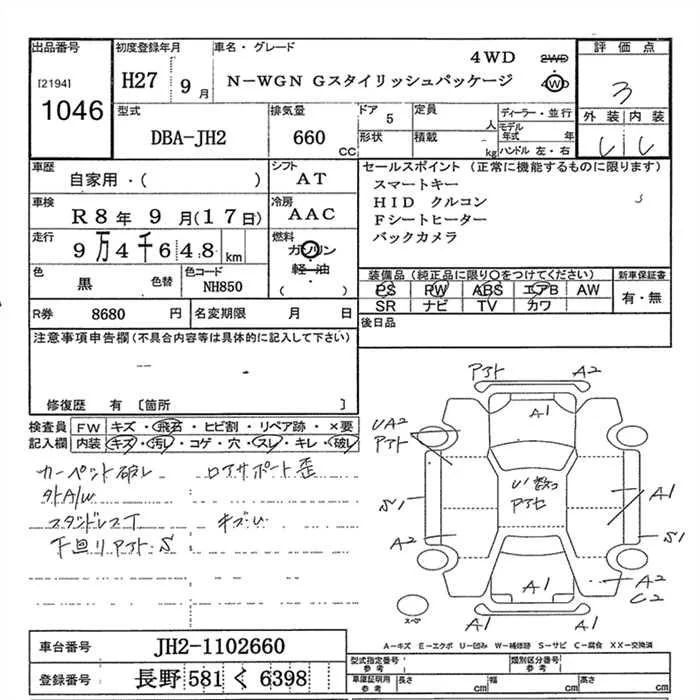 出品番号 初度登録年月 車名・グレード 4WD 2WD 評価点
[2194] H27 9月 N-WGN Gスタイリッシュパッケージ 4WD 3
1046 外装 内装
型式 排気量 ドア 5 定員 人 ディーラー・並行
DBA-JH2 660 cc 形状 積載 kg モデル年式 年
ハンドル 左・右
車歴 シフト セールスポイント (正常に機能するものに限ります)
自家用・( ) AT スマートキー
車検 冷房 HID クルコン
R8年 9月(17日) AAC Fシートヒーター
走行 燃料 バックカメラ
9万4千648km ガソリン
軽・油
( )
色 色替 色コード 装備品(純正品に限り○をつけてください) 新車保証書
黒 NH850 PS PW ABS エアB AW 有・無
SR ナビ TV カワ
R券 8680円 名変期限 月 日 後日品
注意事項申告欄(不具合内容等は具体的に記入して下さい)
修復歴 有 〔箇所 〕
検査員 FW キズ・飛石・ヒビ割・リペア跡・×要
記入欄 内装 キズ・汚レ・コゲ・穴・スレ・キレ・破レ
カーペット破レ ロアサポート歪
社外A/W
キズU
下回リ S
アト A2
A1
UA2
アト
S1
A1
A2
S1
A1
A2
C2
A1 A1
スペア
A-キズ E-エクボ U-凹み W-補修跡 S-サビ C-腐食 XX-交換済
車台番号 JH2-1102660
型式指定番号 参考 類別区分番号 参考
登録番号 長野 581 く 6398
車庫証明用 参考 長さ cm 幅 cm 高さ cm